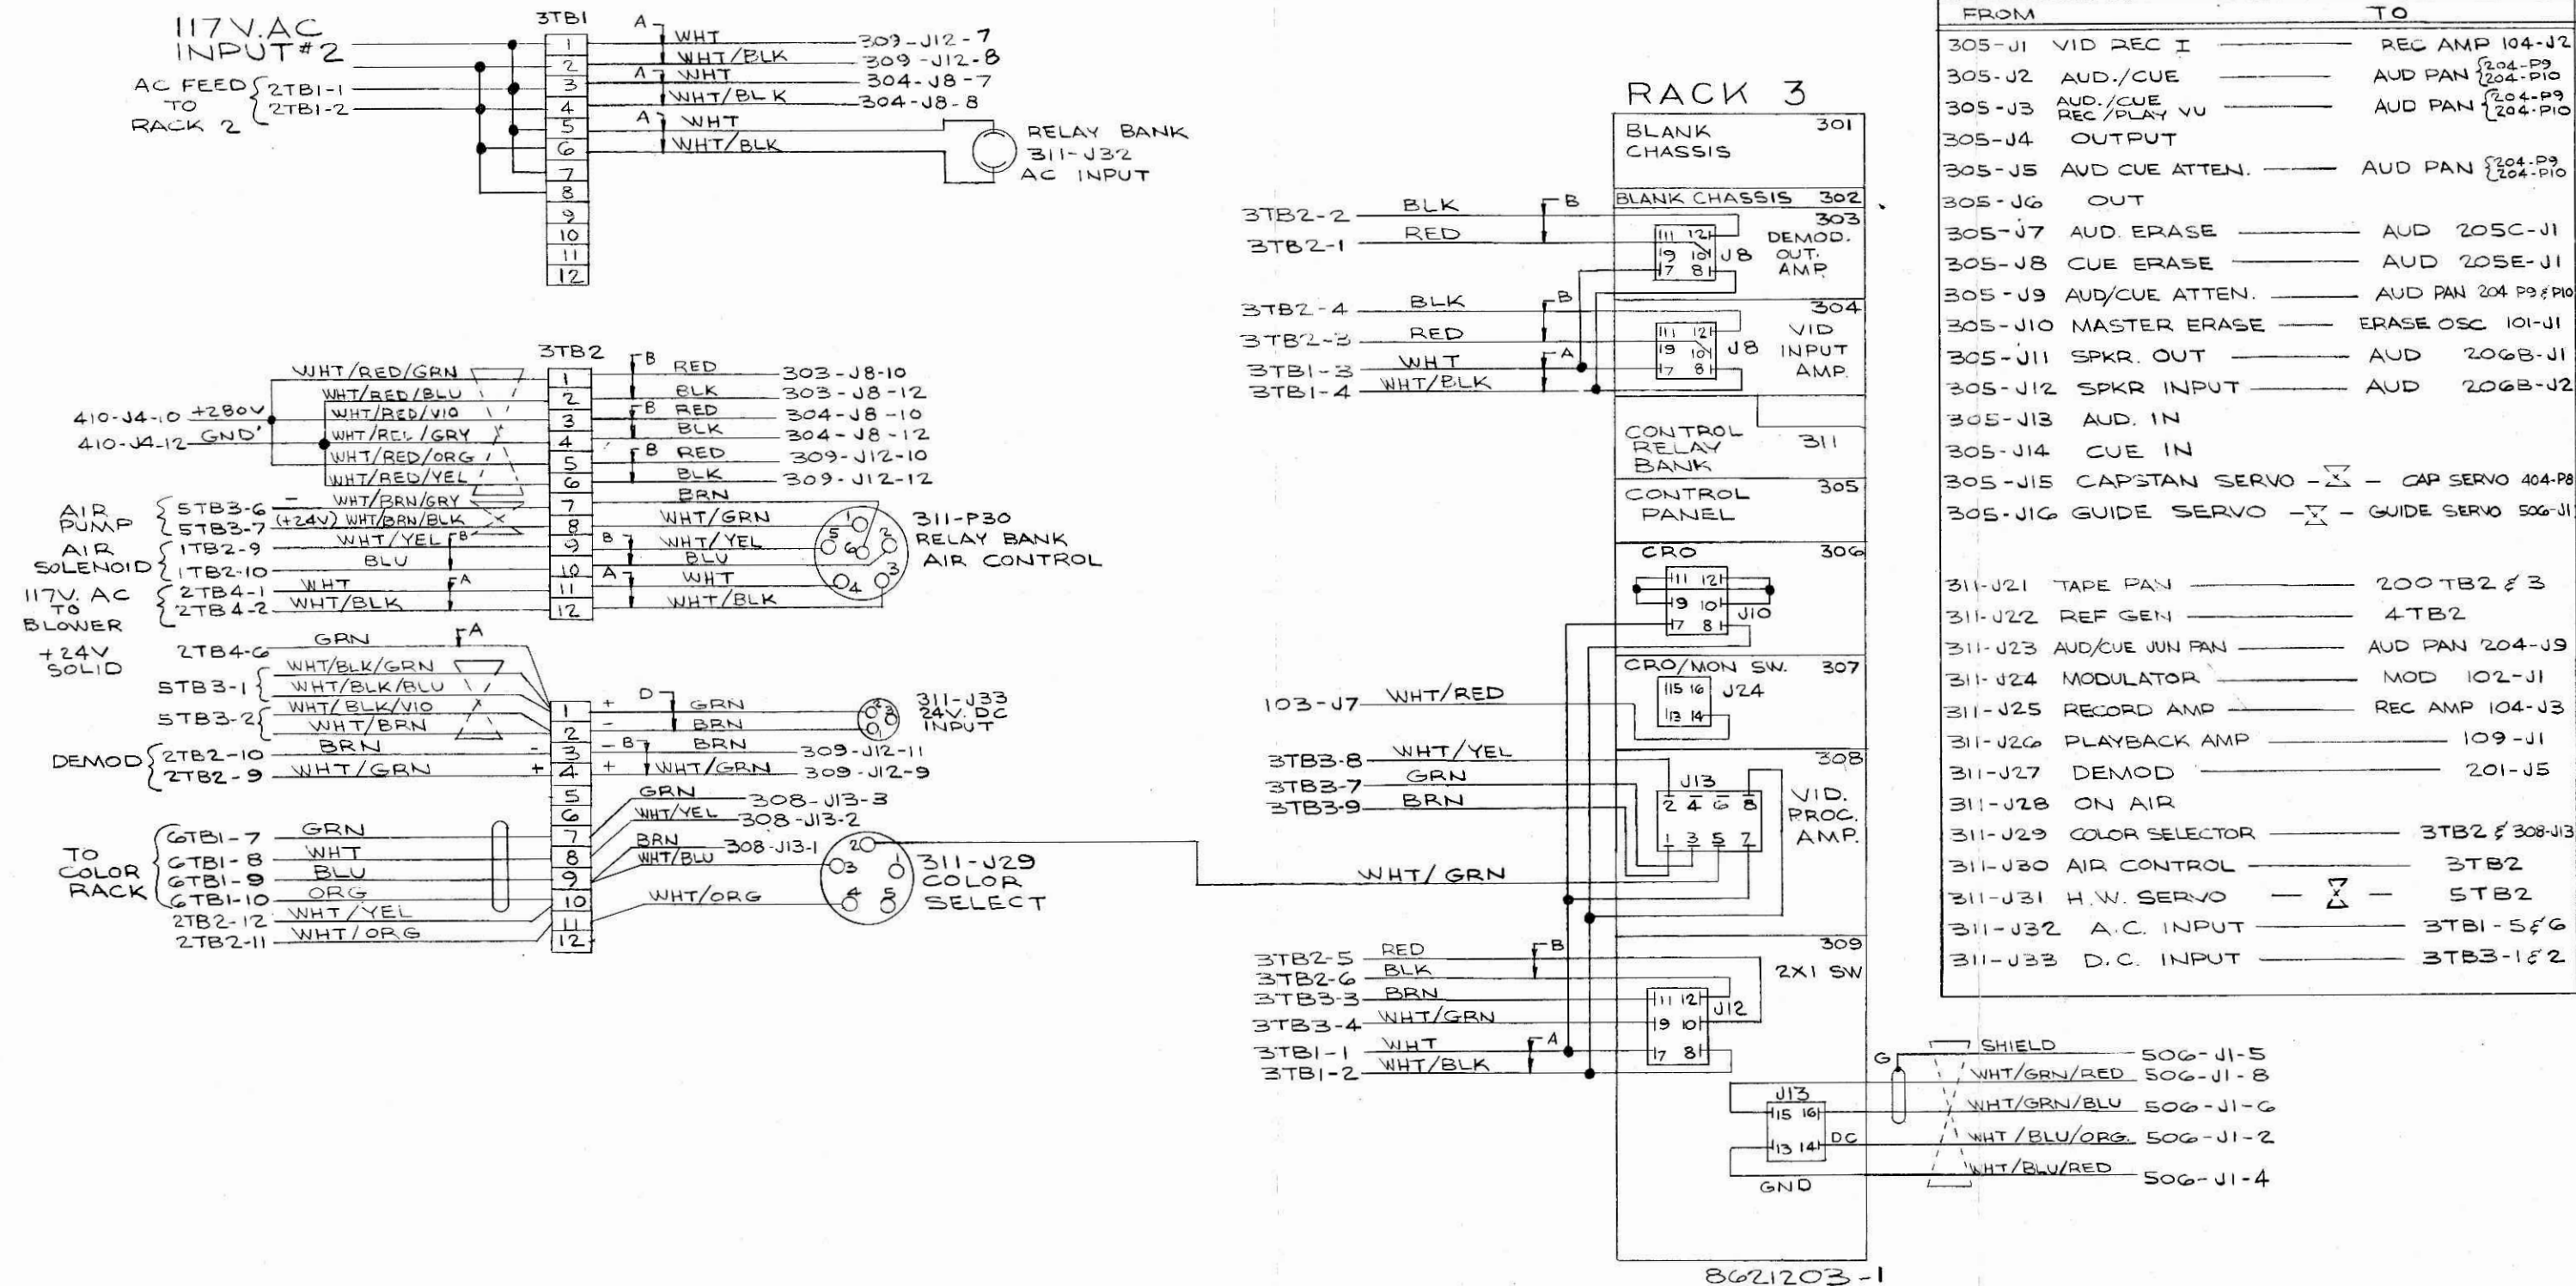 117V.AC
INPUT #2
AC FEED
TO
RACK 2
2TB1-1
2TB1-2
3TB1
1
2
3
4
5
6
7
8
9
10
11
12
A
WHT
309-J12-7
WHT/BLK
309-J12-8
A
WHT
304-J8-7
WHT/BLK
304-J8-8
A
WHT
WHT/BLK
RELAY BANK
311-J32
AC INPUT
3TB2
WHT/RED/GRN
WHT/RED/BLU
410-J4-10 +280V
WHT/RED/VIO
410-J4-12 GND
WHT/REL/GRY
WHT/RED/ORG
WHT/RED/YEL
AIR
PUMP
5TB3-6 - WHT/BRN/GRY
5TB3-7 (+24V) WHT/BRN/BLK
AIR
SOLENOID
1TB2-9 WHT/YEL B
1TB2-10 BLU
117V. AC
TO
BLOWER
2TB4-1 WHT A
2TB4-2 WHT/BLK
1
2
3
4
5
6
7
8
9
10
11
12
B RED 303-J8-10
BLK 303-J8-12
B RED 304-J8-10
BLK 304-J8-12
B RED 309-J12-10
BLK 309-J12-12
BRN
WHT/GRN
B WHT/YEL
BLU
A WHT
WHT/BLK
1
5 6 2
4 3
311-P30
RELAY BANK
AIR CONTROL
+24V
SOLID
2TB4-6 GRN A
5TB3-1
WHT/BLK/GRN
WHT/BLK/BLU
5TB3-2
WHT/BLK/VIO
WHT/BRN
DEMOD
2TB2-10 BRN -
2TB2-9 WHT/GRN +
TO
COLOR
RACK
6TB1-7 GRN
6TB1-8 WHT
6TB1-9 BLU
6TB1-10 ORG
2TB2-12 WHT/YEL
2TB2-11 WHT/ORG
1
2
3
4
5
6
7
8
9
10
11
12
+ D GRN
- BRN
311-J33
24V. DC
INPUT
- B BRN 309-J12-11
+ WHT/GRN 309-J12-9
GRN 308-J13-3
WHT/YEL 308-J13-2
BRN 308-J13-1
WHT/BLU
WHT/ORG
2
3 1
4 5
311-J29
COLOR
SELECT
RACK 3
BLANK
CHASSIS
301
BLANK CHASSIS 302
303
DEMOD.
OUT.
AMP.
3TB2-2 BLK B
3TB2-1 RED
11 12
9 10 J8
7 8
304
VID
INPUT
AMP.
3TB2-4 BLK B
3TB2-3 RED
3TB1-3 WHT A
3TB1-4 WHT/BLK
11 12
9 10 J8
7 8
CONTROL
RELAY
BANK
311
CONTROL
PANEL
305
CRO 306
11 12
9 10 J10
7 8
CRO/MON SW. 307
103-J7 WHT/RED
15 16 J24
13 14
308
VID.
PROC.
AMP.
3TB3-8 WHT/YEL
3TB3-7 GRN
3TB3-9 BRN
J13
2 4 6 8
1 3 5 7
WHT/GRN
309
2X1 SW
3TB2-5 RED B
3TB2-6 BLK
3TB3-3 BRN
3TB3-4 WHT/GRN
3TB1-1 WHT A
3TB1-2 WHT/BLK
11 12 J12
9 10
7 8
J13
15 16
13 14 DC
GND
G
SHIELD 506-J1-5
WHT/GRN/RED 506-J1-8
WHT/GRN/BLU 506-J1-6
WHT/BLU/ORG. 506-J1-2
WHT/BLU/RED 506-J1-4
8621203-1
FROM TO
305-J1 VID REC I REC AMP 104-J2
305-J2 AUD./CUE AUD PAN {204-P9 204-P10
305-J3 AUD./CUE REC/PLAY VU AUD PAN {204-P9 204-P10
305-J4 OUTPUT
305-J5 AUD CUE ATTEN. AUD PAN {204-P9 204-P10
305-J6 OUT
305-J7 AUD. ERASE AUD 205C-J1
305-J8 CUE ERASE AUD 205E-J1
305-J9 AUD/CUE ATTEN. AUD PAN 204 P9 & P10
305-J10 MASTER ERASE ERASE OSC 101-J1
305-J11 SPKR. OUT AUD 206B-J1
305-J12 SPKR INPUT AUD 206B-J2
305-J13 AUD. IN
305-J14 CUE IN
305-J15 CAPSTAN SERVO - X - CAP SERVO 404-P8
305-J16 GUIDE SERVO - X - GUIDE SERVO 506-J1
311-J21 TAPE PAN 200 TB2 & 3
311-J22 REF GEN 4TB2
311-J23 AUD/CUE JUN PAN AUD PAN 204-J9
311-J24 MODULATOR MOD 102-J1
311-J25 RECORD AMP REC AMP 104-J3
311-J26 PLAYBACK AMP 109-J1
311-J27 DEMOD 201-J5
311-J28 ON AIR
311-J29 COLOR SELECTOR 3TB2 & 308-J13
311-J30 AIR CONTROL 3TB2
311-J31 H.W. SERVO - X - 5TB2
311-J32 A.C. INPUT 3TB1-5&6
311-J33 D.C. INPUT 3TB3-1&2